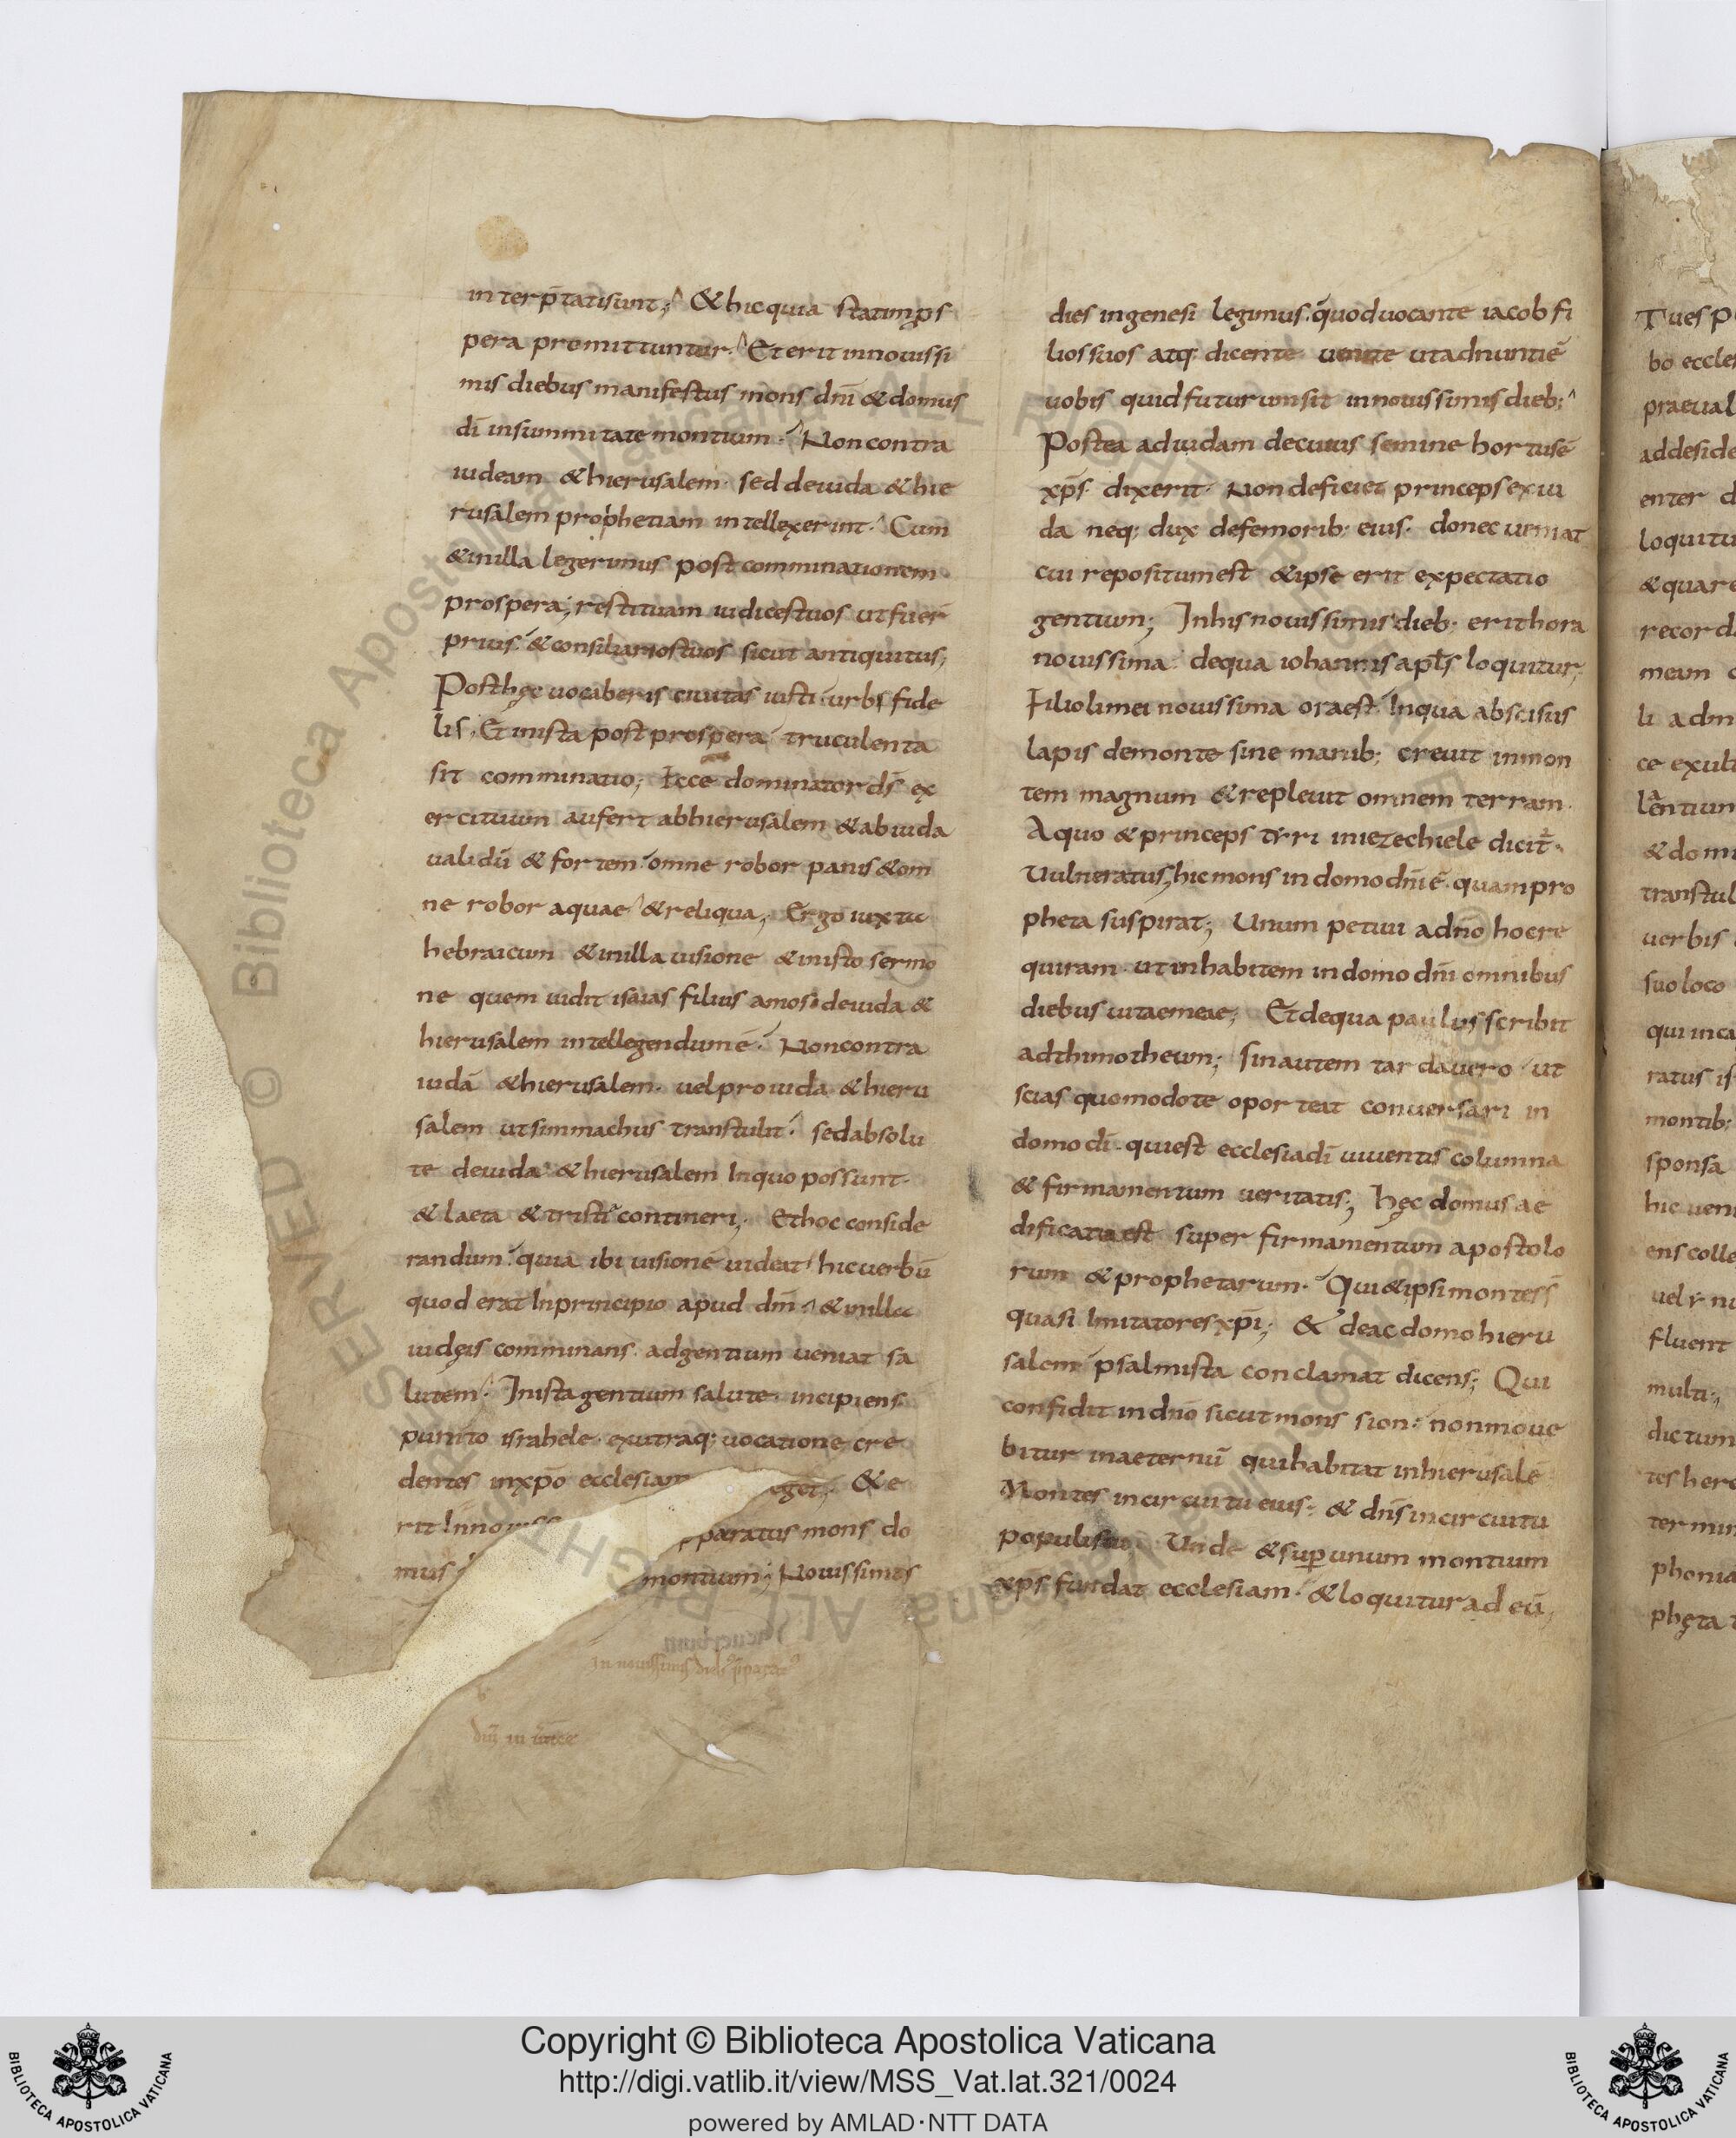 interp̄tatisunt; & hic quia statim ꝓs
pera promittuntur. Et erit in nouissi
mis diebus manifestus mons dn̄i & domus
dī in summitate montium. Non contra
iudeam & hierusalem. sed de iuda & hie
rusalem prophetiam intellexerint. Cum
& in illa legerimus post comminationem
prospera; restituam iudices tuos ut fuer̄
prius. & consiliarios tuos sicut antiquitus;
Post hęc uocaberis ciuitas iusti. urbs fide
lis. Et in ista post prospera truculenta
sit comminatio; Ecce dominator dn̄s ex
ercituum aufert ab hierusalem & ab iuda
ualidū & fortem. omne robor panis & om
ne robor aquae & reliqua; Ergo iuxta
hebraicum & in illa uisione & in isto sermo
ne quem uidit isaias filius amos. de iuda &
hierusalem intellegendum ē. Non contra
iudā & hierusalem. uel pro iuda & hieru
salem ut simmachus transtulit. sed absolu
te de iuda & hierusalem In quo possunt.
& laeta & tristia contineri; Et hoc conside
randum. quia ibi uisionē uideat. hic uerbū
quod erat In principio apud dm̄. & in illa
iudęis comminans. ad gentium ueniat sa
lutem. In ista gentium salute. incipiens.
punito israhele. ex utraq; uocatione cre
dentes in xp̄o ecclesiam &e
rit In paratus mons do
mus montium; Nouissimos
In nouissimis dieb; p̄paratꝰ
dies in genesi legimus. quod uocante iacob fi
lios suos atq; dicente. uenite ut adnuntiē
uobis quid futurum sit in nouissimis dieb;
Postea ad iudam de cuius semine hortus ē
xp̄s dixerit. Non deficiet princeps ex iu
da neq; dux de femorib; eius. donec ueniat
cui repositum est & ipse erit expectatio
gentium; In his nouissimis dieb; erit hora
nouissima. de qua iohannis apl̄s loquitur;
Filioli mei nouissima ora est. In qua abscisus
lapis de monte sine manib; creuit in mon
tem magnum & repleuit omnem terram.
A quo & princeps tyri in iezechiele dicit̄.
Uulneratus; hic mons in domo dn̄i ē. quam pro
pheta suspirat; Unum petiui a dn̄o hoc re
quiram. ut inhabitem in domo dn̄i omnibus
diebus uitae meae; Et de qua paulus scribit
ad thimotheum; sin autem tardauero ut
scias quomodo te oporteat conuersari in
domo dī. qui est ecclesia dī uiuentis columna
& firmamentum ueritatis; hęc domus ae
dificata est super firmamentum apostolo
rum & prophetarum. Qui & ipsi montes s̄
quasi Imitatores xp̄i; & de ac domo hieru
salem psalmista conclamat dicens; Qui
confidit in dn̄o sicut mons sion. non moue
bitur in aeternū qui habitat in hierusalē
Montes in circuitu eius. & dn̄s in circuitu
populi sui. Unde & sup̄ unum montium
xp̄s fundat ecclesiam. & loquitur ad eū;
Tu es p
bo eccle
praeual
ad deside
enter
loquitu
& quare
recorda
meum
li adm
ce exult
lentium
& domi
transtul
uerbis
suo loco
qui in ca
ratus is
montib;
sponsa
hic ueni
ens colle
uel
fluent
multi;
dictum
tes here
termin
phonia
phęta
Copyright © Biblioteca Apostolica Vaticana
http://digi.vatlib.it/view/MSS_Vat.lat.321/0024
powered by AMLAD·NTT DATA
BIBLIOTECA APOSTOLICA VATICANA
BIBLIOTECA APOSTOLICA VATICANA